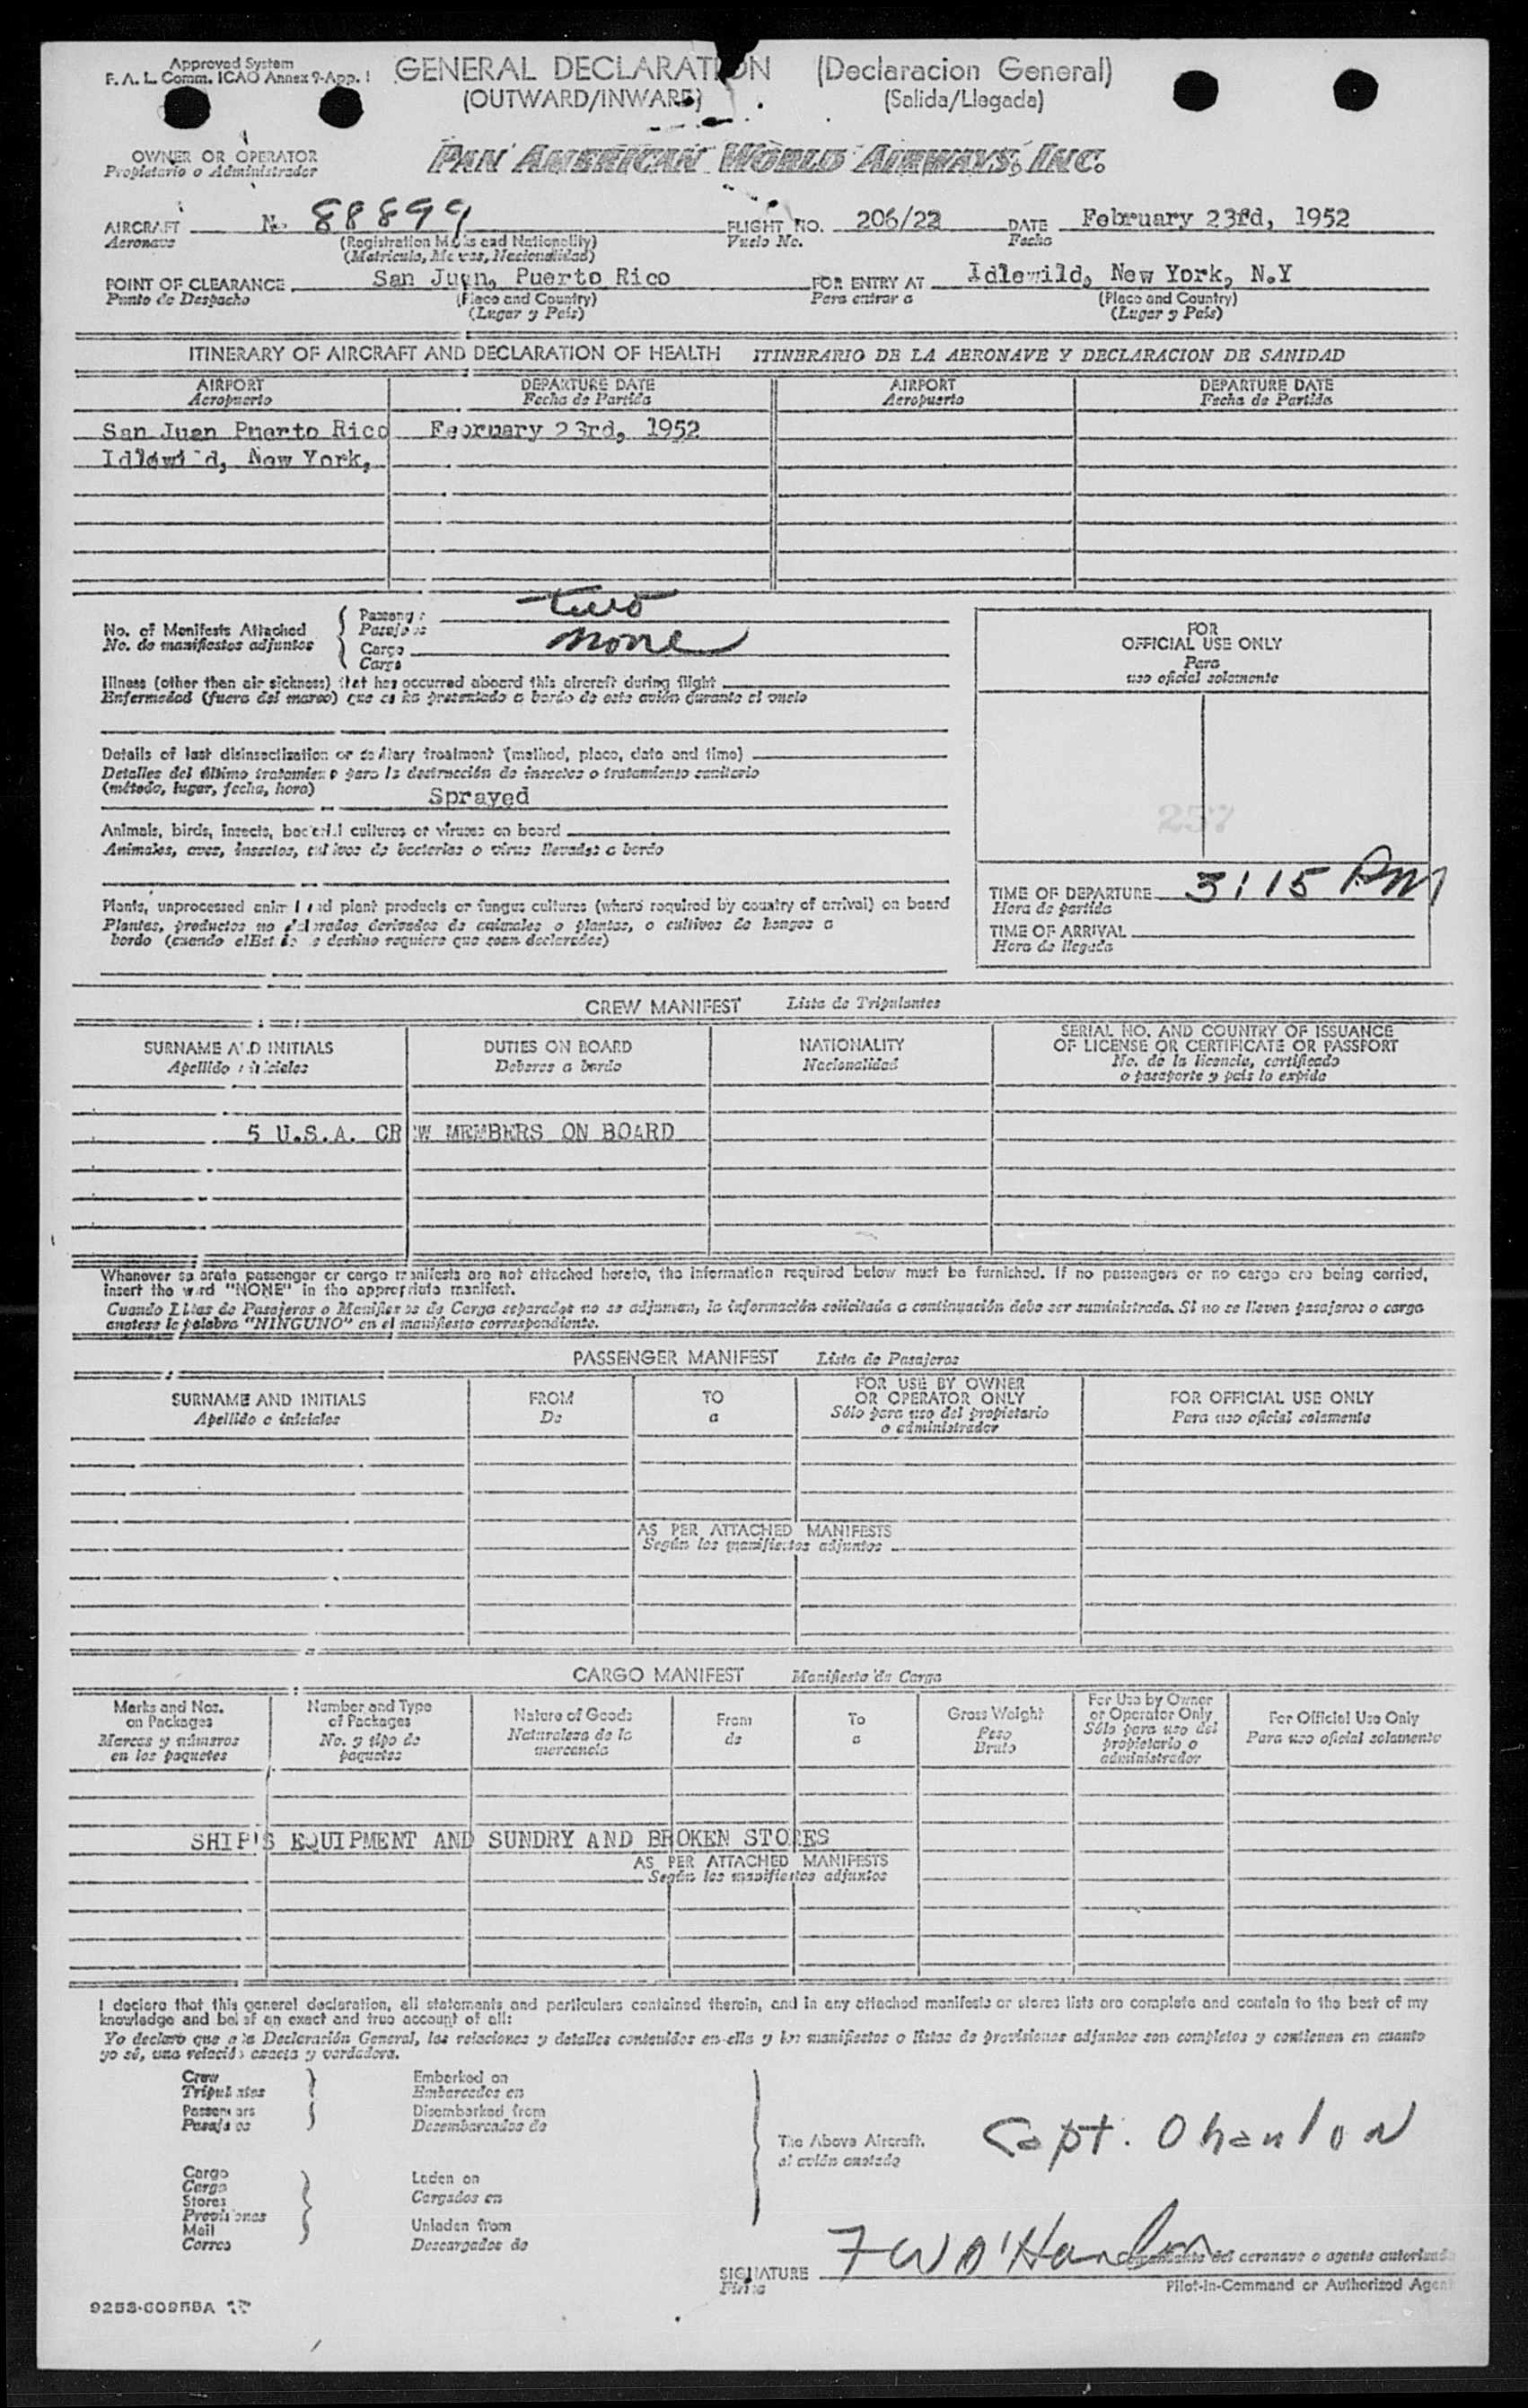 Approved System
F. A. L. Comm. ICAO Annex 9-App. 1
GENERAL DECLARATION (Declaracion General)
(OUTWARD/INWARD) (Salida/Llegada)
OWNER OR OPERATOR
Propietario o Administrador
PAN AMERICAN WORLD AIRWAYS, INC.
AIRCRAFT N. 88899 FLIGHT NO. 206/22 DATE February 23rd, 1952
Aeronave (Registration Marks and Nationality) Vuelo No. Fecha
(Matricula, Marcas, Nacionalidad)
POINT OF CLEARANCE San Juan, Puerto Rico FOR ENTRY AT Idlewild, New York, N.Y
Punto de Despacho (Place and Country) Para entrar a (Place and Country)
(Lugar y Pais) (Lugar y Pais)
ITINERARY OF AIRCRAFT AND DECLARATION OF HEALTH ITINERARIO DE LA AERONAVE Y DECLARACION DE SANIDAD
AIRPORT DEPARTURE DATE AIRPORT DEPARTURE DATE
Aeropuerto Fecha de Partida Aeropuerto Fecha de Partida
San Juan Puerto Rico February 23rd, 1952
Idlewild, New York,
No. of Manifests Attached
No. de manifiestos adjuntos
Passenger two
Pasajeros
Cargo none
Carga
Illness (other than air sickness) that has occurred aboard this aircraft during flight
Enfermedad (fuera del mareo) que se ha presentado a bordo de este avión durante el vuelo
Details of last disinsectization or sanitary treatment (method, place, date and time)
Detalles del último tratamiento para la destrucción de insectos o tratamiento sanitario
(método, lugar, fecha, hora) Sprayed
Animals, birds, insects, bacterial cultures or viruses on board
Animales, aves, insectos, cultivos de bacterias o virus llevados a bordo
Plants, unprocessed animal and plant products or fungus cultures (where required by country of arrival) on board
Plantas, productos no elaborados derivados de animales o plantas, o cultivos de hongos a
bordo (cuando el Estado de destino requiere que sean declarados)
FOR
OFFICIAL USE ONLY
Para
uso oficial solamente
237
TIME OF DEPARTURE 3:15 PM
Hora de partida
TIME OF ARRIVAL
Hora de llegada
CREW MANIFEST Lista de Tripulantes
SURNAME AND INITIALS DUTIES ON BOARD NATIONALITY SERIAL NO. AND COUNTRY OF ISSUANCE
OF LICENSE OR CERTIFICATE OR PASSPORT
Apellido e iniciales Deberes a bordo Nacionalidad No. de la licencia, certificado
o pasaporte y país lo expide
5 U.S.A. CREW MEMBERS ON BOARD
Whenever separate passenger or cargo manifests are not attached hereto, the information required below must be furnished. If no passengers or no cargo are being carried,
insert the word "NONE" in the appropriate manifest.
Cuando Listas de Pasajeros o Manifiestos de Carga separados no se adjuntan, la información solicitada a continuación debe ser suministrada. Si no se llevan pasajeros o carga
anotese la palabra "NINGUNO" en el manifiesto correspondiente.
PASSENGER MANIFEST Lista de Pasajeros
SURNAME AND INITIALS FROM TO FOR USE BY OWNER
OR OPERATOR ONLY FOR OFFICIAL USE ONLY
Apellido e iniciales De a Sólo para uso del propietario
o administrador Para uso oficial solamente
AS PER ATTACHED MANIFESTS
Según los manifiestos adjuntos
CARGO MANIFEST Manifiesto de Carga
Marks and Nos.
on Packages
Marcas y números
en los paquetes
Number and Type
of Packages
No. y tipo de
paquetes
Nature of Goods
Naturaleza de la
mercancia
From
de
To
a
Gross Weight
Peso
Bruto
For Use by Owner
or Operator Only
Sólo para uso del
propietario o
administrador
For Official Use Only
Para uso oficial solamente
SHIP'S EQUIPMENT AND SUNDRY AND BROKEN STORES
AS PER ATTACHED MANIFESTS
Según los manifiestos adjuntos
I declare that this general declaration, all statements and particulars contained therein, and in any attached manifests or stores lists are complete and contain to the best of my
knowledge and belief an exact and true account of all:
Yo declaro que a la Declaración General, las relaciones y detalles contenidos en ella y los manifiestos o listas de provisiones adjuntos son completos y contienen en cuanto
yo sé, una relación exacta y verdadera.
Crew Embarked on
Tripulantes Embarcados en
Passengers Disembarked from
Pasajeros Desembarcados de
The Above Aircraft. Capt. Ohanlon
al avión anotado
Cargo Laden on
Carga Cargados en
Stores
Provisiones
Mail Unladen from
Correo Descargados de
SIGNATURE F W O'Hanlon
Firma
Comandante del aeronave o agente autorizado
Pilot-in-Command or Authorized Agent
9253-60955A